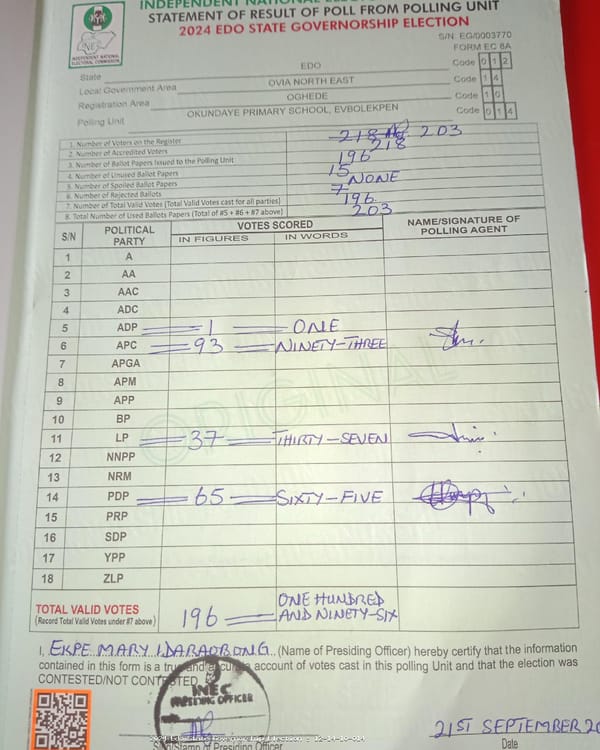 INDEPENDENT NATIONAL
STATEMENT OF RESULT OF POLL FROM POLLING UNIT
2024 EDO STATE GOVERNORSHIP ELECTION
INEC
INDEPENDENT NATIONAL ELECTORAL COMMISSION
S/N: EG/0003770
FORM EC 8A
State EDO Code 0 1 2
Local Government Area OVIA NORTH EAST Code 1 4
Registration Area OGHEDE Code 1 0
Polling Unit OKUNDAYE PRIMARY SCHOOL, EVBOLEKPEN Code 0 1 4
1. Number of Voters on the Register 218 203
2. Number of Accredited Voters 218
3. Number of Ballot Papers Issued to the Polling Unit 196
4. Number of Unused Ballot Papers 15
5. Number of Spoiled Ballot Papers NONE
6. Number of Rejected Ballots 7
7. Number of Total Valid Votes (Total Valid Votes cast for all parties) 196
8. Total Number of Used Ballots Papers (Total of #5 + #6 + #7 above) 203
S/N POLITICAL PARTY VOTES SCORED NAME/SIGNATURE OF POLLING AGENT
IN FIGURES IN WORDS
1 A
2 AA
3 AAC
4 ADC
5 ADP 1 ONE
6 APC 93 NINETY-THREE
7 APGA
8 APM
9 APP
10 BP
11 LP 37 THIRTY-SEVEN
12 NNPP
13 NRM
14 PDP 65 SIXTY-FIVE
15 PRP
16 SDP
17 YPP
18 ZLP
ORIGINAL
TOTAL VALID VOTES 196 ONE HUNDRED AND NINETY-SIX
(Record Total Valid Votes under #7 above)
I, EKPE MARY IDARAOBONG (Name of Presiding Officer) hereby certify that the information
contained in this form is a true and accurate account of votes cast in this polling Unit and that the election was
CONTESTED/NOT CONTESTED
INEC
PRESIDING OFFICER
21ST SEPTEMBER 20
Sign/Stamp of Presiding Officer Date